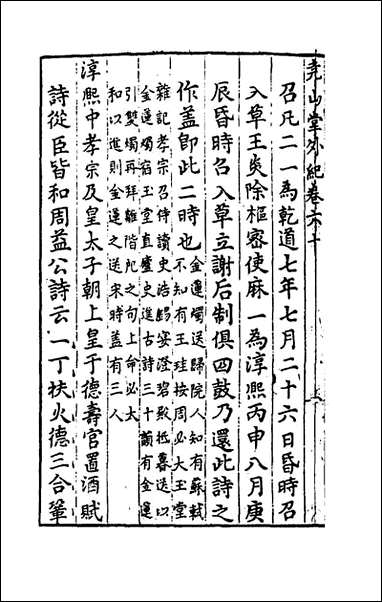 堯山堂外紀卷六十
召凡二一為乾道七年七月二十六日昏時召
入草王炎除樞密使麻一為淳熙丙申八月庚
辰昏時召入草立謝后制俱四鼓乃還此詩之
作蓋即此二時也
金蓮燭送歸院人知有蘇軾
不知有王珪按周必大玉堂
雜記孝宗召侍讀史浩錫宴澄碧殿抵暮送以
金蓮燭宿玉堂直廬史進古詩三十韻有金蓮
引雙燭再拜離階陀之句上命必大
和以進則金蓮之送宋時蓋有三人
淳熙中孝宗及皇太子朝上皇于德壽宮置酒賦
詩從臣皆和周益公詩云一丁扶火德三合鞏